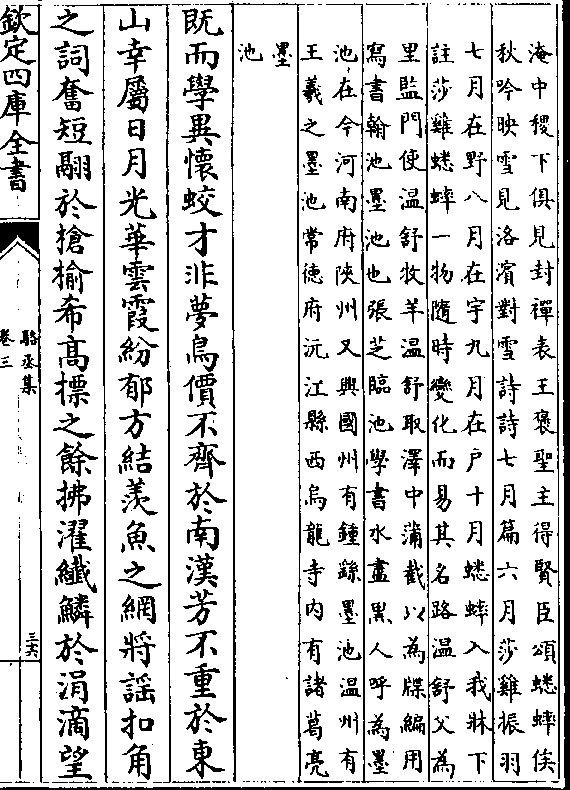 淹中稷下俱見封禪表王褒聖主得賢臣頌蟋蟀俟
秋吟映雪見洛濱對雪詩詩七月篇六月莎雞振羽
七月在野八月在宇九月在户十月蟋蟀入我牀下
註莎雞蟋蟀一物隨時變化而易其名路温舒父為
里監門使温舒牧羊温舒取澤中蒲截以為牒編用
寫書翰池墨池也張芝臨池學書水盡黒人呼為墨
池在今河南府陜州又興國州有鍾繇墨池温州有
王羲之墨池常徳府沅江縣西烏龍寺内有諸葛亮
墨
池
既而學異懷蛟才非夢鳥價不齊於南漢芳不重於東
山幸屬日月光華雲霞紛郁方結羨魚之網將謡扣角
之詞奮短翮於搶揄希高摽之餘拂濯纖鱗於涓滴望
欽定四庫全書
駱丞集
卷三
三六